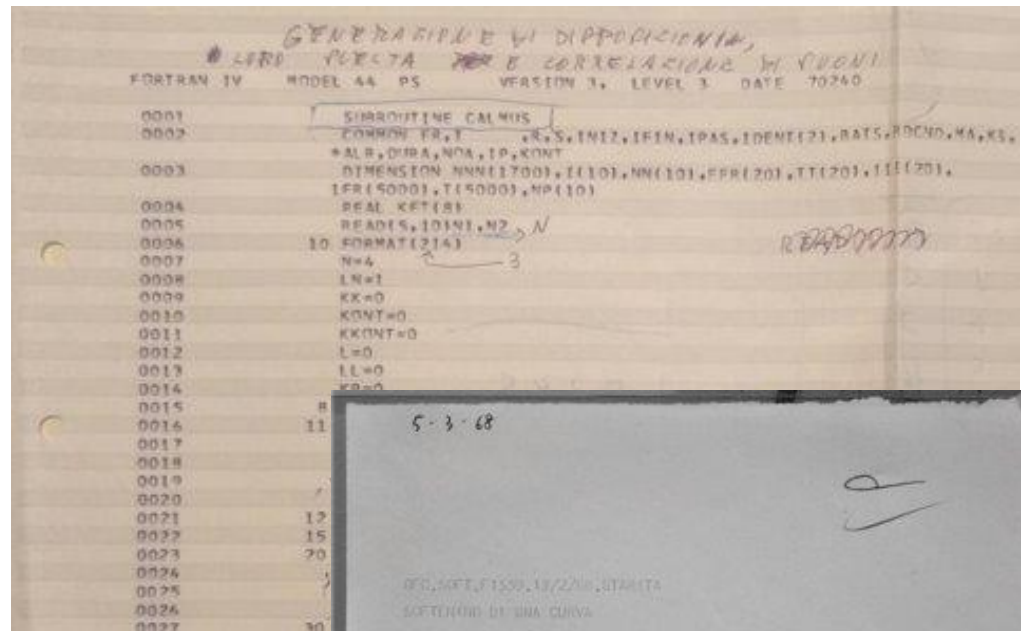 GENERAZIONE DI DISPOSIZIONI,
LORO SCELTA E CORRELAZIONE DI SUONI
FORTRAN IV MODEL 44 PS VERSION 3, LEVEL 3 DATE 70240
0001 SUBROUTINE CALMUS
0002 COMMON FR,T ,R,S,INIZ,IFIN,IPAS,IDENT(2),RATS,ROCNO,MA,KS,
*ALR,DURA,NOA,IP,KONT
0003 DIMENSION NNN(1700),I(10),NN(10),FFR(20),TT(20),III(20),
1FR(5000),T(5000),NP(10)
0004 REAL KFT(8)
0005 READ(5,10)N1,N2 N
0006 10 FORMAT(2I4)
3
0007 N=4
0008 LN=1
0009 KK=0
0010 KONT=0
0011 KKONT=0
0012 L=0
0013 LL=0
0014 KR=0
0015 8
0016 11
0017
0018
0019
0020
0021 12
0022 15
0023 20
0024
0025
0026
0027 30
5-3-68
SOFTENING DI UNA CURVA